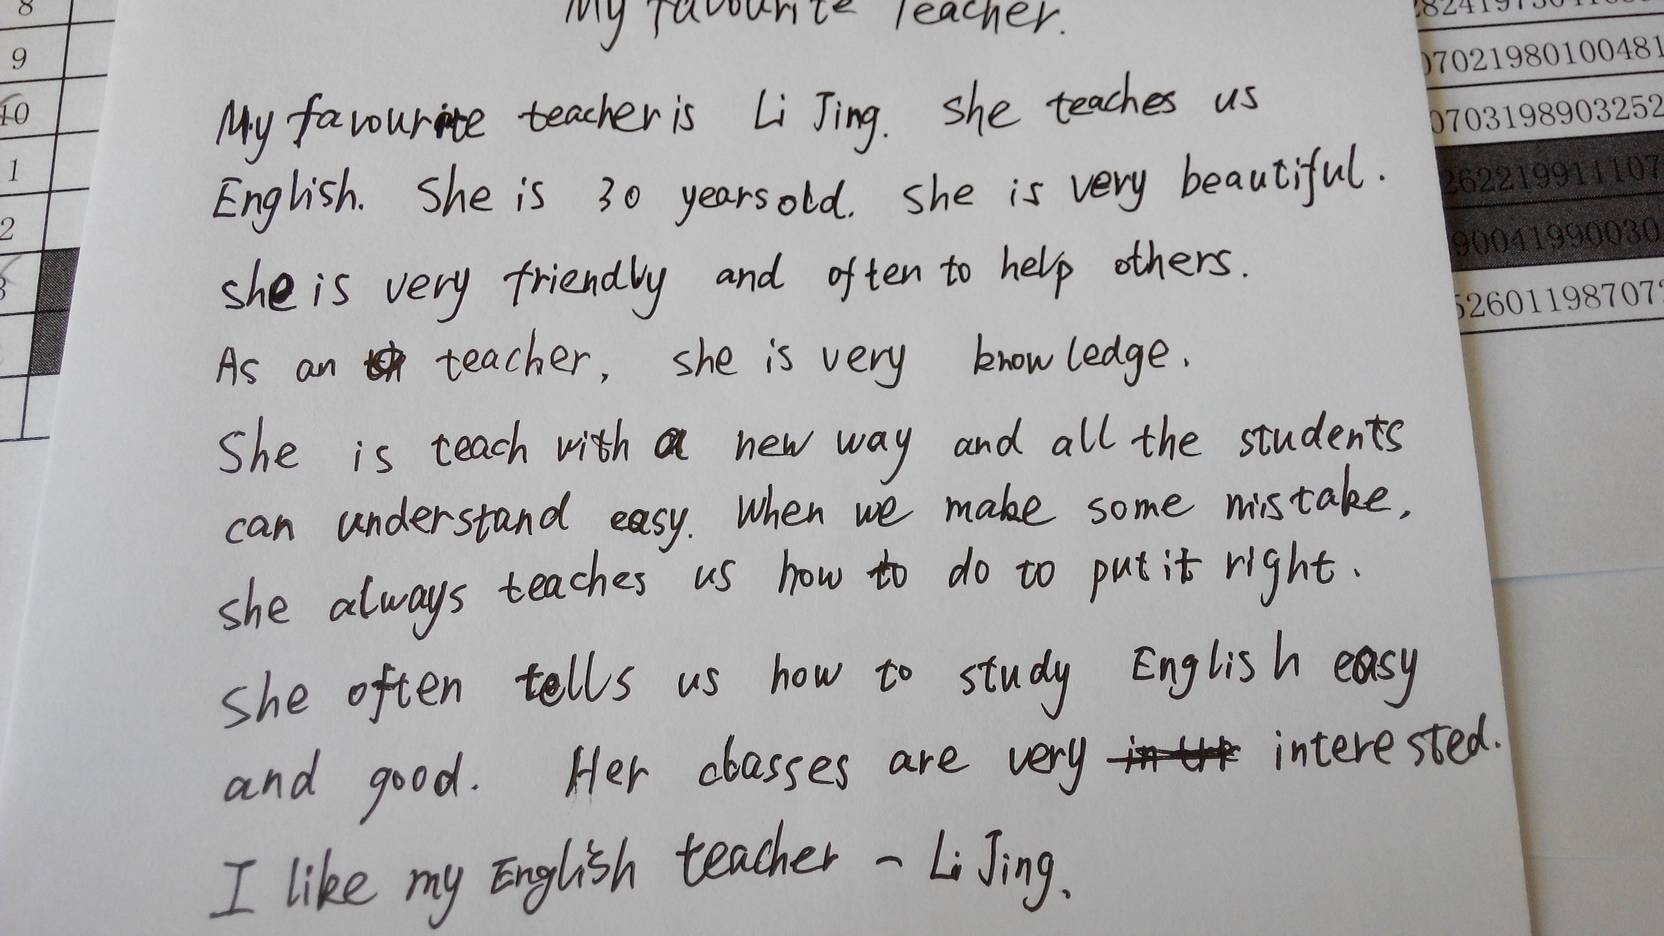 My favourite Teacher.
My favourite teacher is Li Jing. She teaches us
English. She is 30 years old. She is very beautiful.
she is very friendly and often to help others.
As an teacher, she is very knowledge.
She is teach with a new way and all the students
can understand easy. When we make some mistake,
she always teaches us how to do to put it right.
She often tells us how to study English easy
and good. Her classes are very interested.
I like my English teacher - Li Jing.
8
9
10
1
2
3
07021980100481
0703198903252
262219911107
90041990030
52601198707